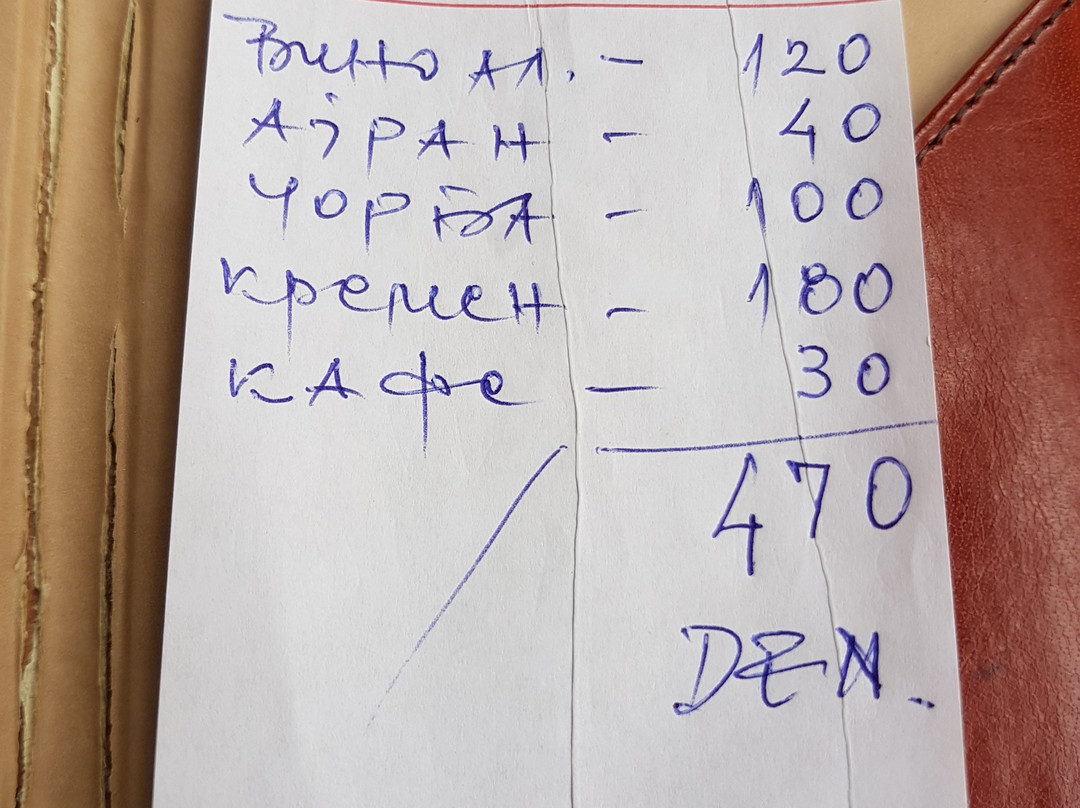 Вино Ал. - 120
АЈРАН - 40
ЧОРБА - 100
Кремен - 180
КАфе - 30
470
DEN.